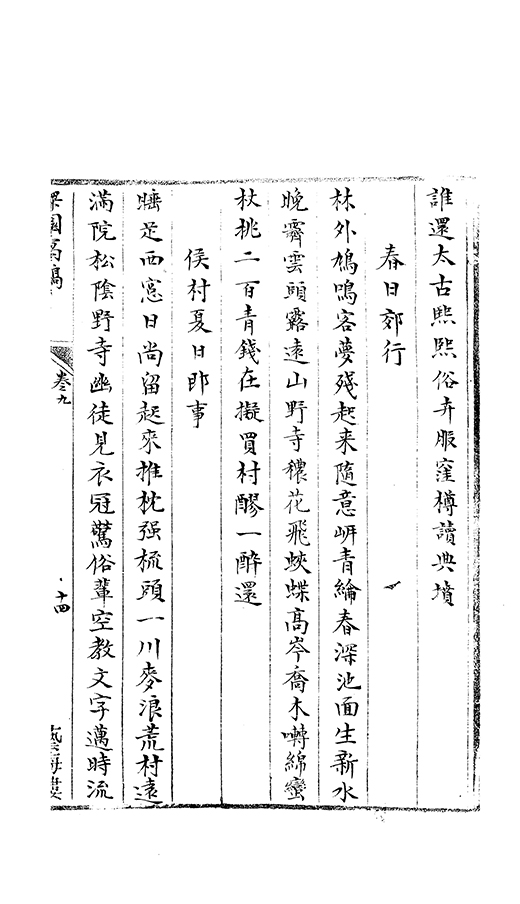 誰還太古熙熙俗卉服窪樽讀典墳
春日郊行
林外鳩鳴客夢殘起来隨意岍青綸春深池面生新水
晚霽雲頭露遠山野寺穠花飛蛺蝶高岑喬木囀綿蠻
杖挑二百青錢在擬買村醪一醉還
侯村夏日即事
睡足西窓日尚留起來推枕强梳頭一川麥浪荒村遠
滿院松陰野寺幽徒見衣冠驚俗輩空教文字邁時流
卷九
十四